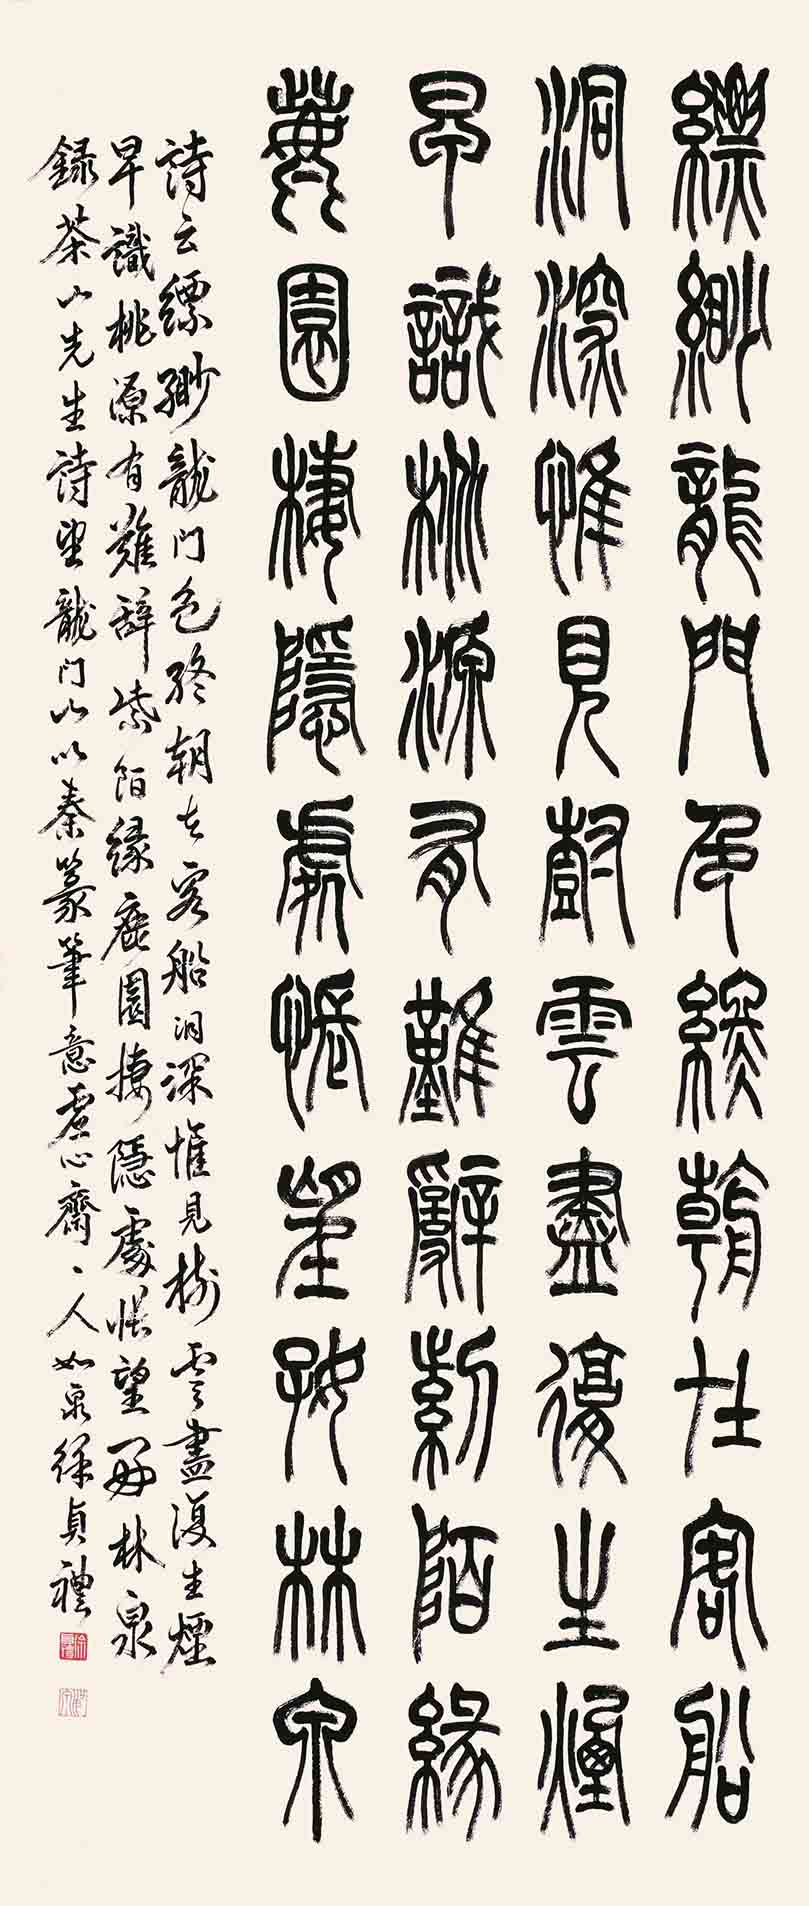 縹緲龍門色終朝在客船
洞深惟見樹雲盡復生煙
早識桃源有難辭紫陌緣
鹿園棲隱處悵望好林泉
詩云縹緲龍門色終朝在客船洞深惟見樹雲盡復生煙
早識桃源有難辭紫陌緣鹿園棲隱處悵望好林泉
録茶山先生詩望龍門山以秦篆筆意虛心齋主人如泉徐貞禮